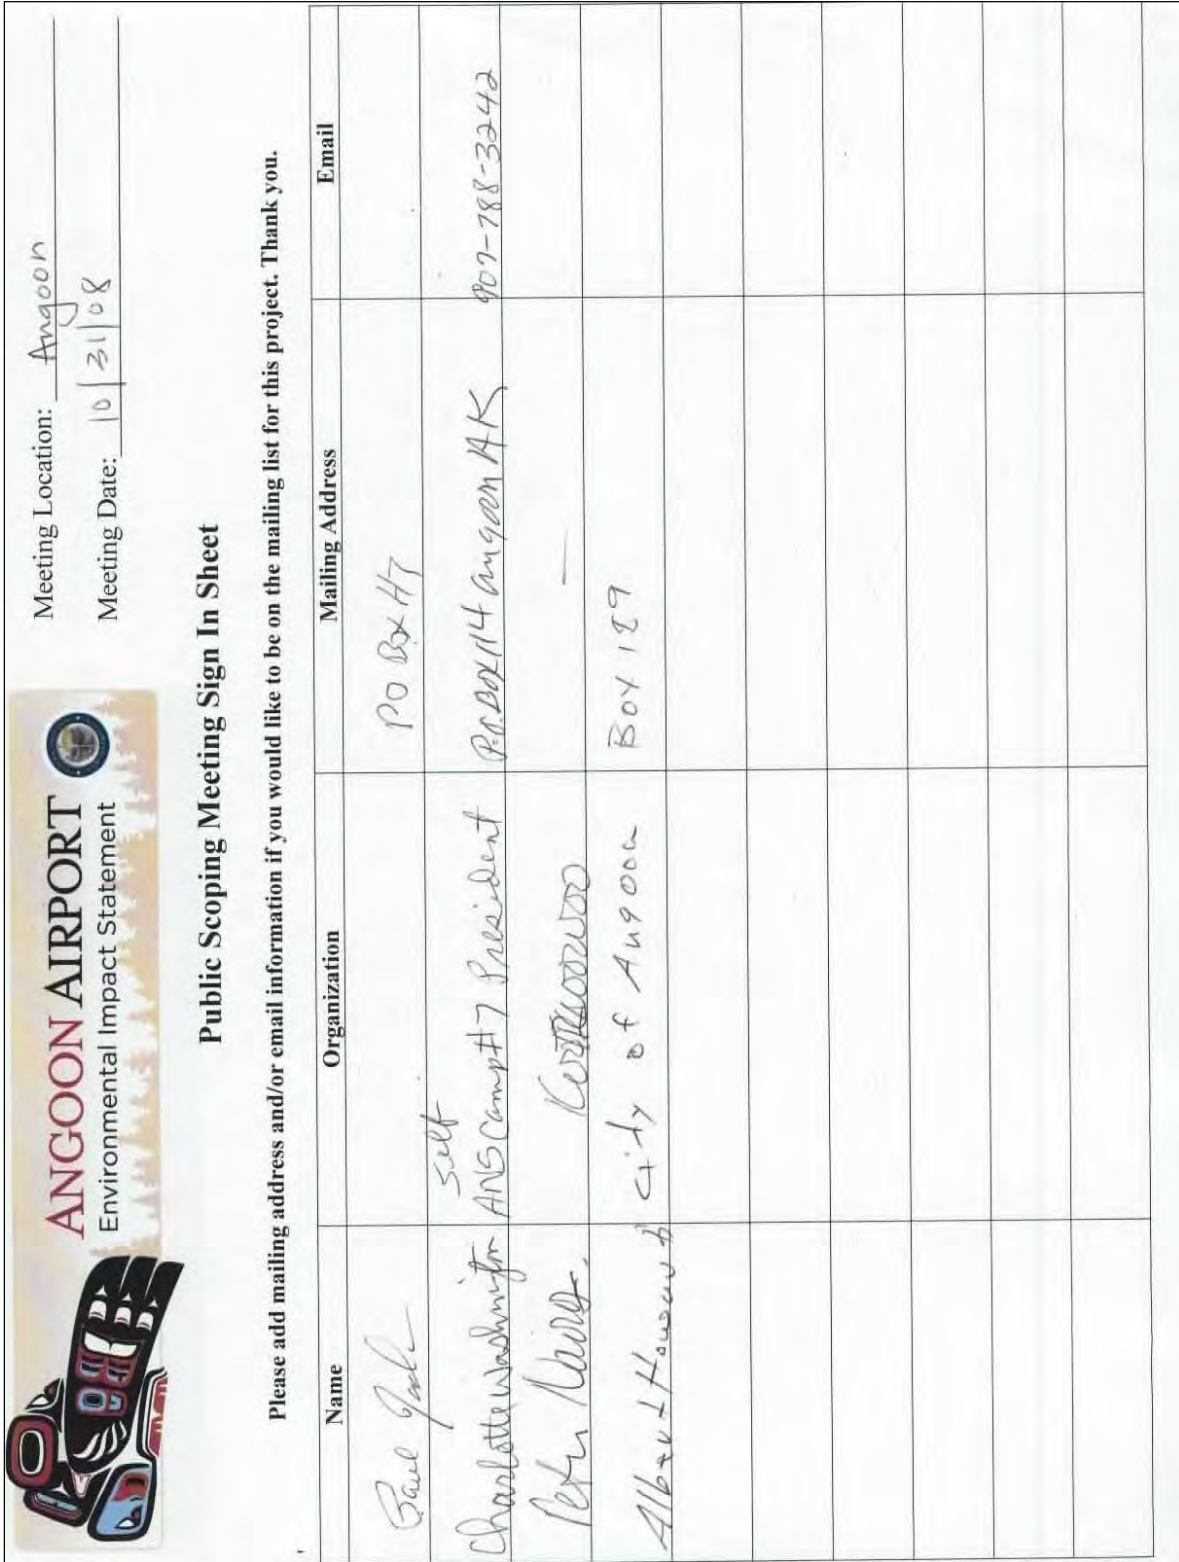 ANGOON AIRPORT
Environmental Impact Statement
Meeting Location: Angoon
Meeting Date: 10/31/08
Public Scoping Meeting Sign In Sheet
Please add mailing address and/or email information if you would like to be on the mailing list for this project. Thank you.
Name Organization Mailing Address Email
Self PO Box
Charlotte Washington ANS Camp #7 President P.O. Box 114 Angoon AK 907-788-3242
Peter —
Albert Howard City of Angoon Box 189